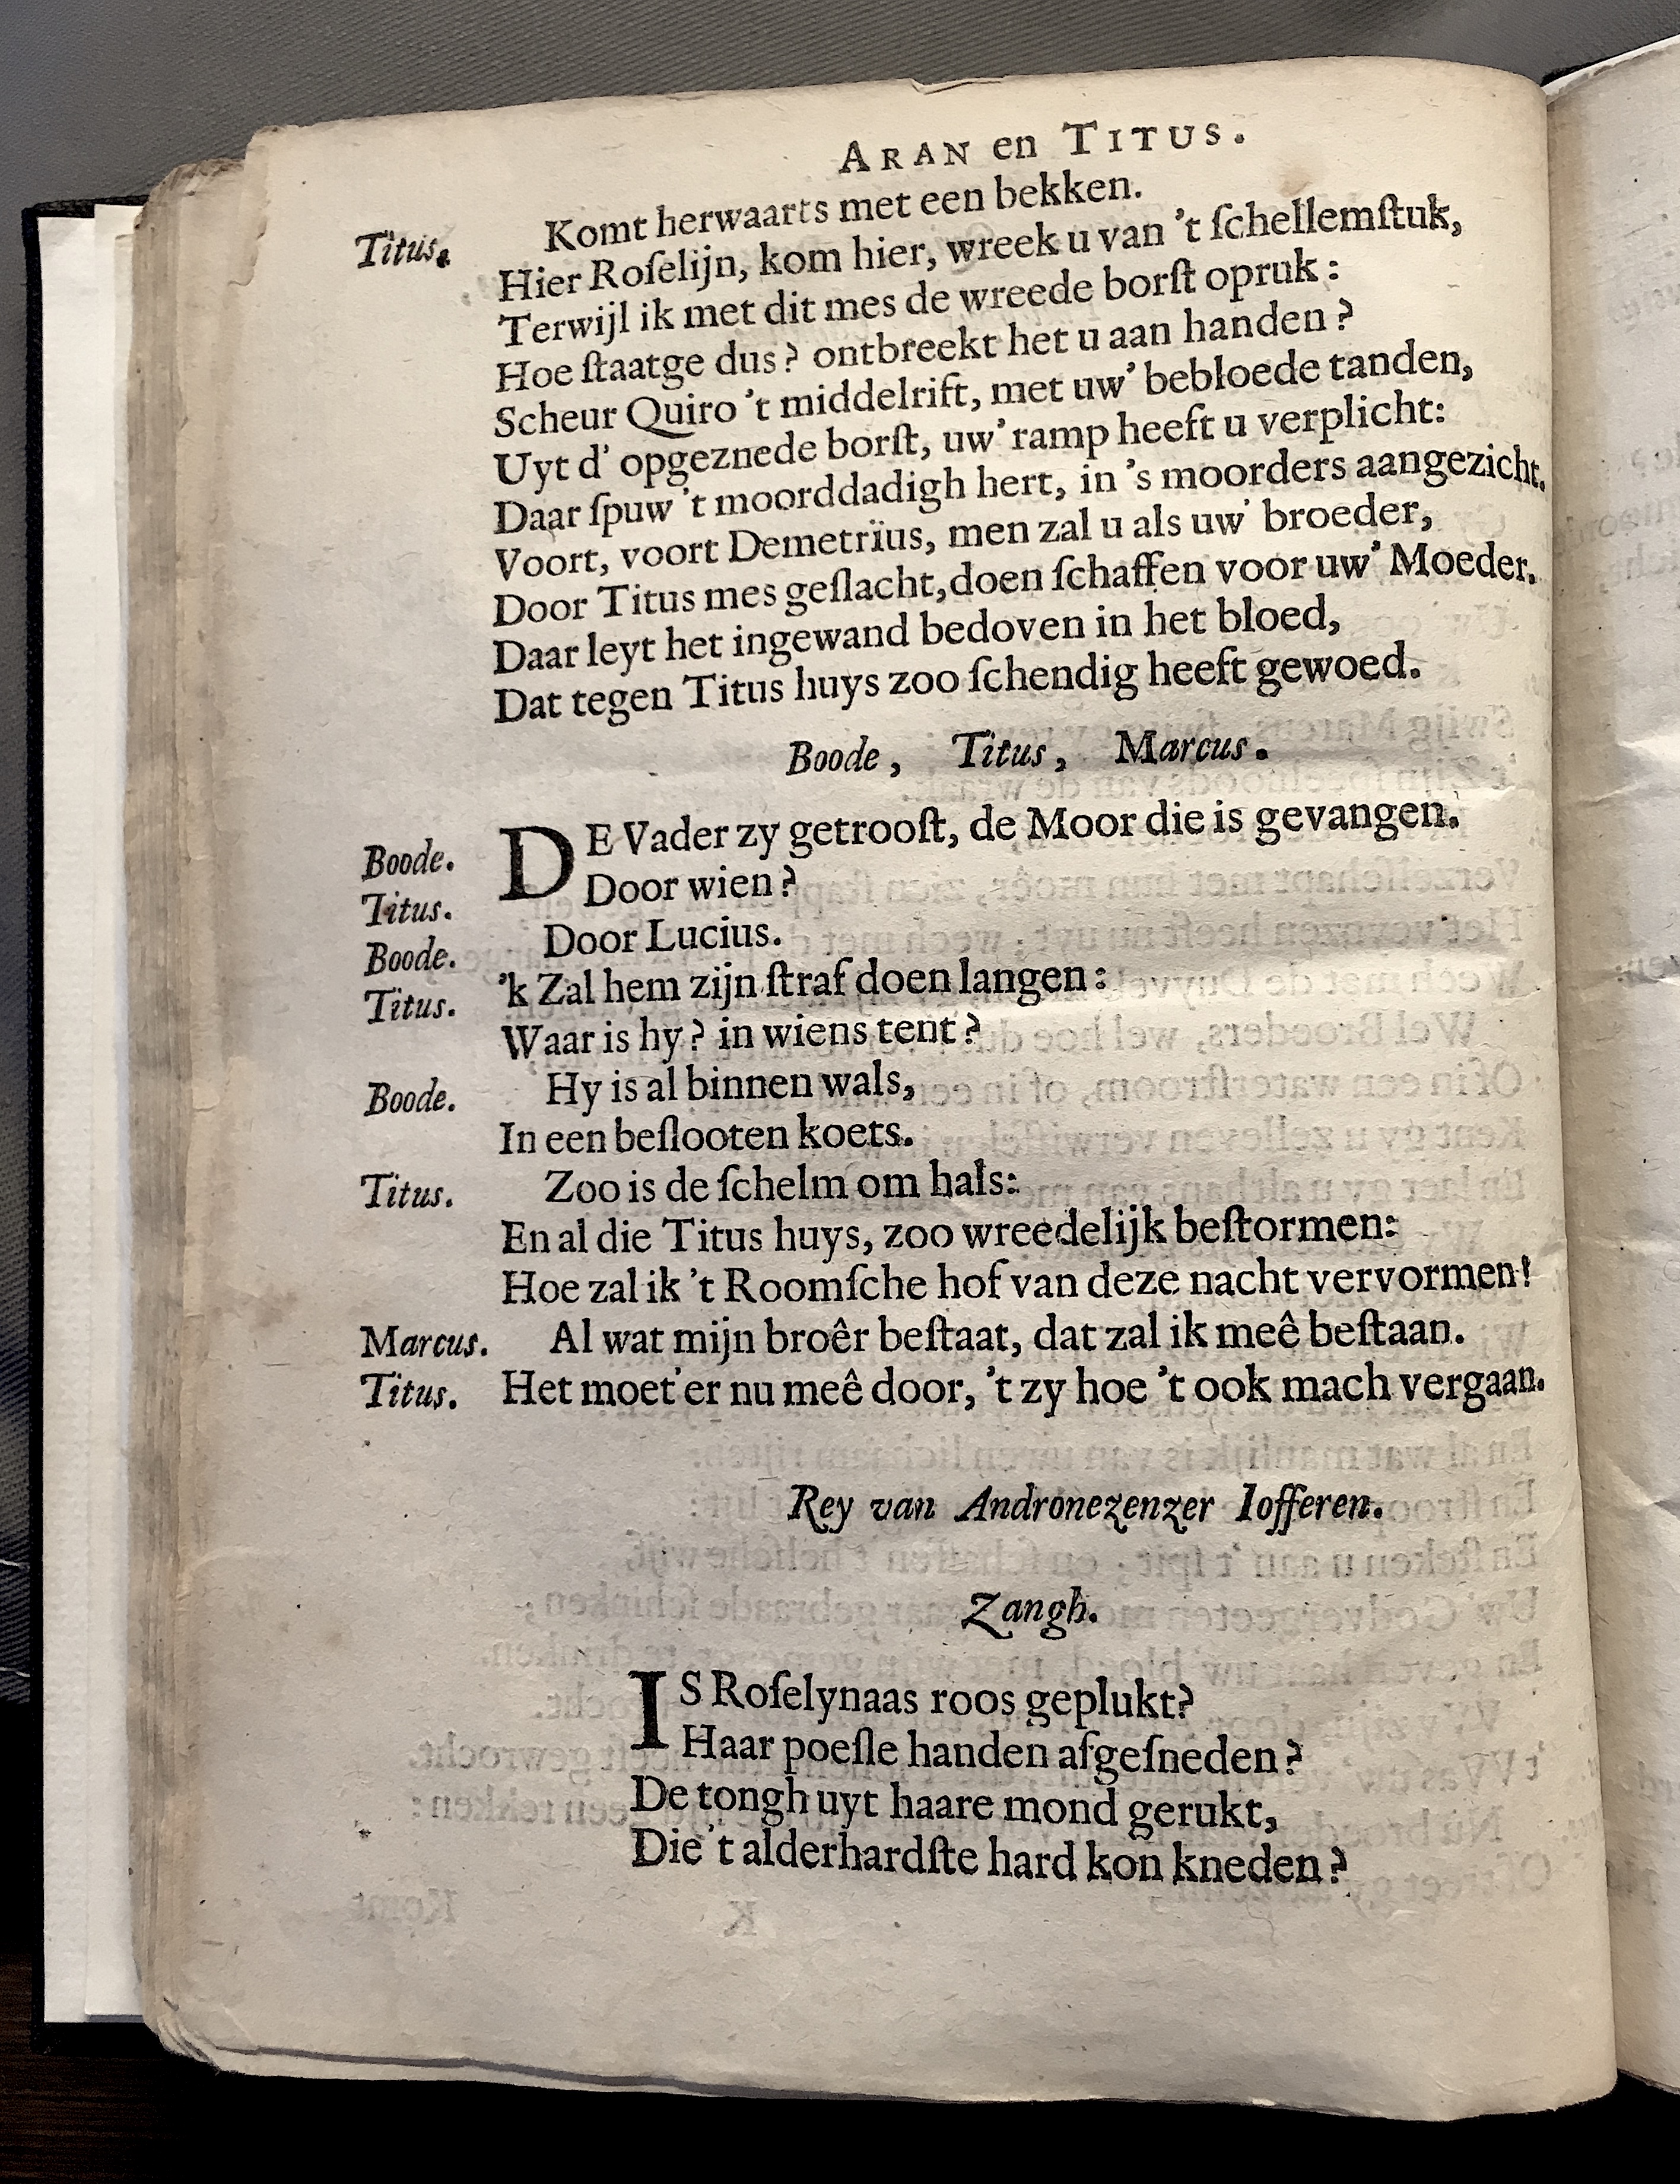 ARAN en TITUS.
Titus. Komt herwaarts met een bekken.
Hier Roſelijn, kom hier, wreek u van 't ſchellemſtuk,
Terwijl ik met dit mes de wreede borſt opruk:
Hoe ſtaatge dus? ontbreekt het u aan handen?
Scheur Quiro 't middelrift, met uw' bebloede tanden,
Uyt d' opgeznede borſt, uw' ramp heeft u verplicht:
Daar ſpuw 't moorddadigh hert, in 's moorders aangezicht.
Voort, voort Demetriüs, men zal u als uw' broeder,
Door Titus mes geſlacht, doen ſchaffen voor uw' Moeder.
Daar leyt het ingewand bedoven in het bloed,
Dat tegen Titus huys zoo ſchendig heeft gewoed.
Boode, Titus, Marcus.
Boode. DE Vader zy getrooſt, de Moor die is gevangen.
Titus. Door wien?
Boode. Door Lucius.
Titus. 'k Zal hem zijn ſtraf doen langen:
Waar is hy? in wiens tent?
Boode. Hy is al binnen wals,
In een beſlooten koets.
Titus. Zoo is de ſchelm om hals:
En al die Titus huys, zoo wreedelijk beſtormen:
Hoe zal ik 't Roomſche hof van deze nacht vervormen!
Marcus. Al wat mijn broêr beſtaat, dat zal ik meê beſtaan.
Titus. Het moet'er nu meê door, 't zy hoe 't ook mach vergaan.
Rey van Andronezenzer Iofferen.
Zangh.
IS Roſelynaas roos geplukt?
Haar poeſle handen afgeſneden?
De tongh uyt haare mond gerukt,
Die 't alderhardſte hard kon kneden?